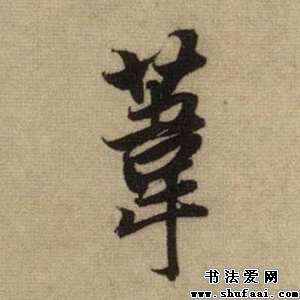 葦
书法爱网
www.shufaai.com